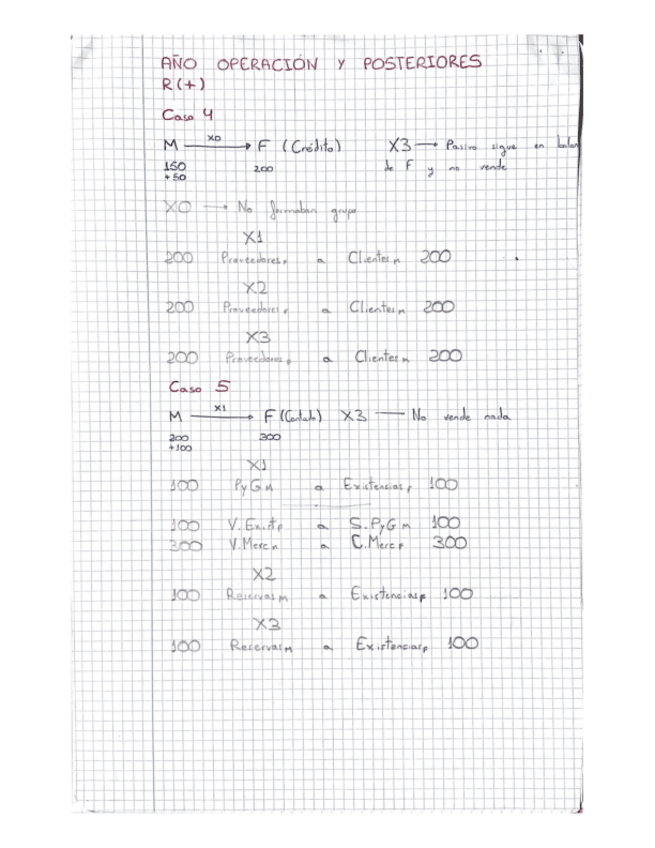 AÑO OPERACIÓN Y POSTERIORES
R(+)
Caso 4
M X0 → F (Crédito) X3 → Pasivo sigue en balan
150 200 de F y no vende
+50
X0 → No formaban grupo
X1
200 Proveedores F a Clientes M 200
X2
200 Proveedores F a Clientes M 200
X3
200 Proveedores F a Clientes M 200
Caso 5
M X1 → F (Contado) X3 — No vende nada
200 300
+100
X1
100 PyG M a Existencias F 100
100 V. Exist F a S. PyG M 100
300 V. Merc M a C. Merc F 300
X2
100 Reservas M a Existencias F 100
X3
100 Reservas M a Existencias F 100